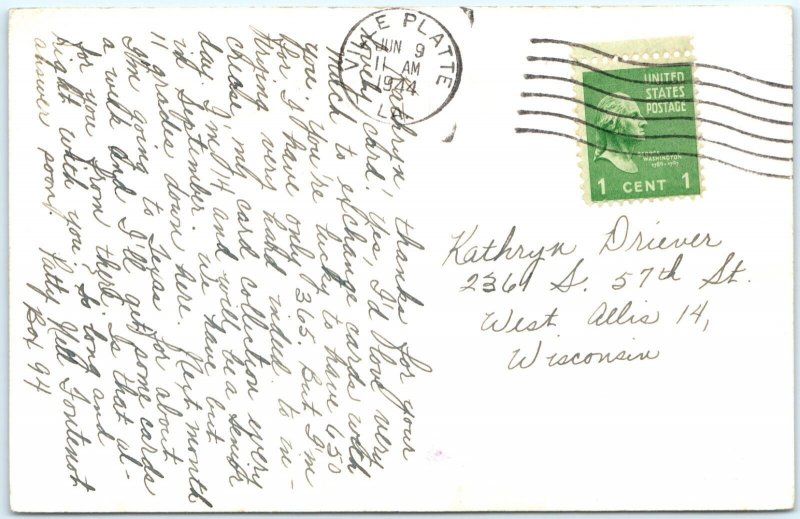 VILLE PLATTE
JUN 9
11 AM
1944
LA.
UNITED
STATES
POSTAGE
GEORGE
WASHINGTON
1789-1797
1 CENT 1
Kathryn Driever
2361 S. 57th St.
West Allis 14,
Wisconsin
Kathryn, thanks for your
lovely card! Yes, I'd love very
much to exchange cards with
you. You're lucky to have 650
for I have only 365. But I'm
trying very hard indeed to in-
crease my card collection every
day. I'm 14 and will be a senior
in September. We have but
11 grades down here. Next month
I'm going to Texas for about
a week and I'll get some cards
for you from there. Is that al-
right with you? So long and
answer soon. Patsy Nell Fontenot
Box 94